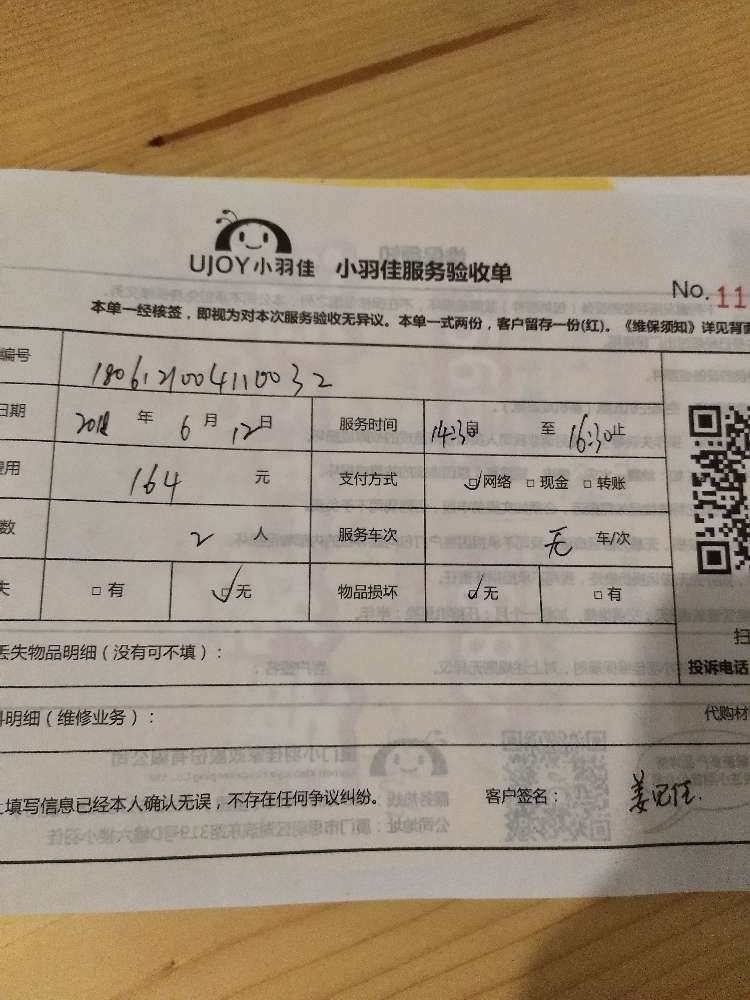 UJOY小羽佳 小羽佳服务验收单
No. 11
本单一经核签，即视为对本次服务验收无异议。本单一式两份，客户留存一份(红)。《维保须知》详见背面
编号 1806121004110032
日期 2018 年 6 月 12 日 服务时间 14:30 自 至 16:30 止
费用 164 元 支付方式 ☑网络 □现金 □转账
数 2 人 服务车次 无 车/次
失 □有 ☑无 物品损坏 ☑无 □有
丢失物品明细（没有可不填）：
扫
投诉电话
料明细（维修业务）：
代购材
上填写信息已经本人确认无误，不存在任何争议纠纷。 客户签名：